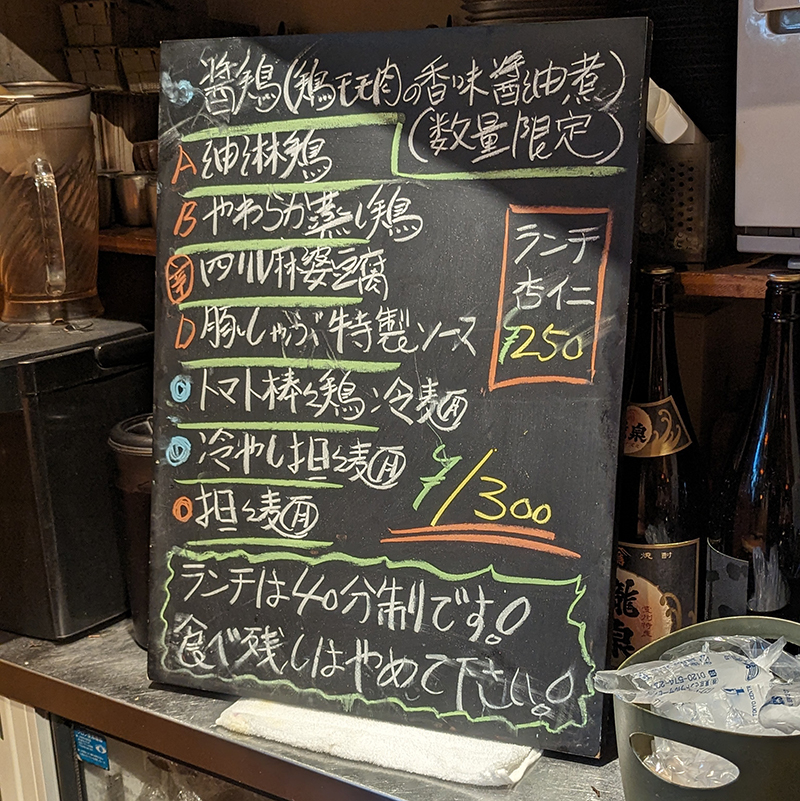 醤鶏(鶏モモ肉の香味醤油煮)
(数量限定)
A 油淋鶏
B やわらか蒸し鶏
辛 四川麻婆豆腐
D 豚しゃぶ特製ソース
トマト棒々鶏冷麺
冷やし担々麺
担々麺
¥1300
ランチ
杏仁
¥250
ランチは40分制です!
食べ残しはやめて下さい!
泉
焼酎
龍泉
0120-57A-2